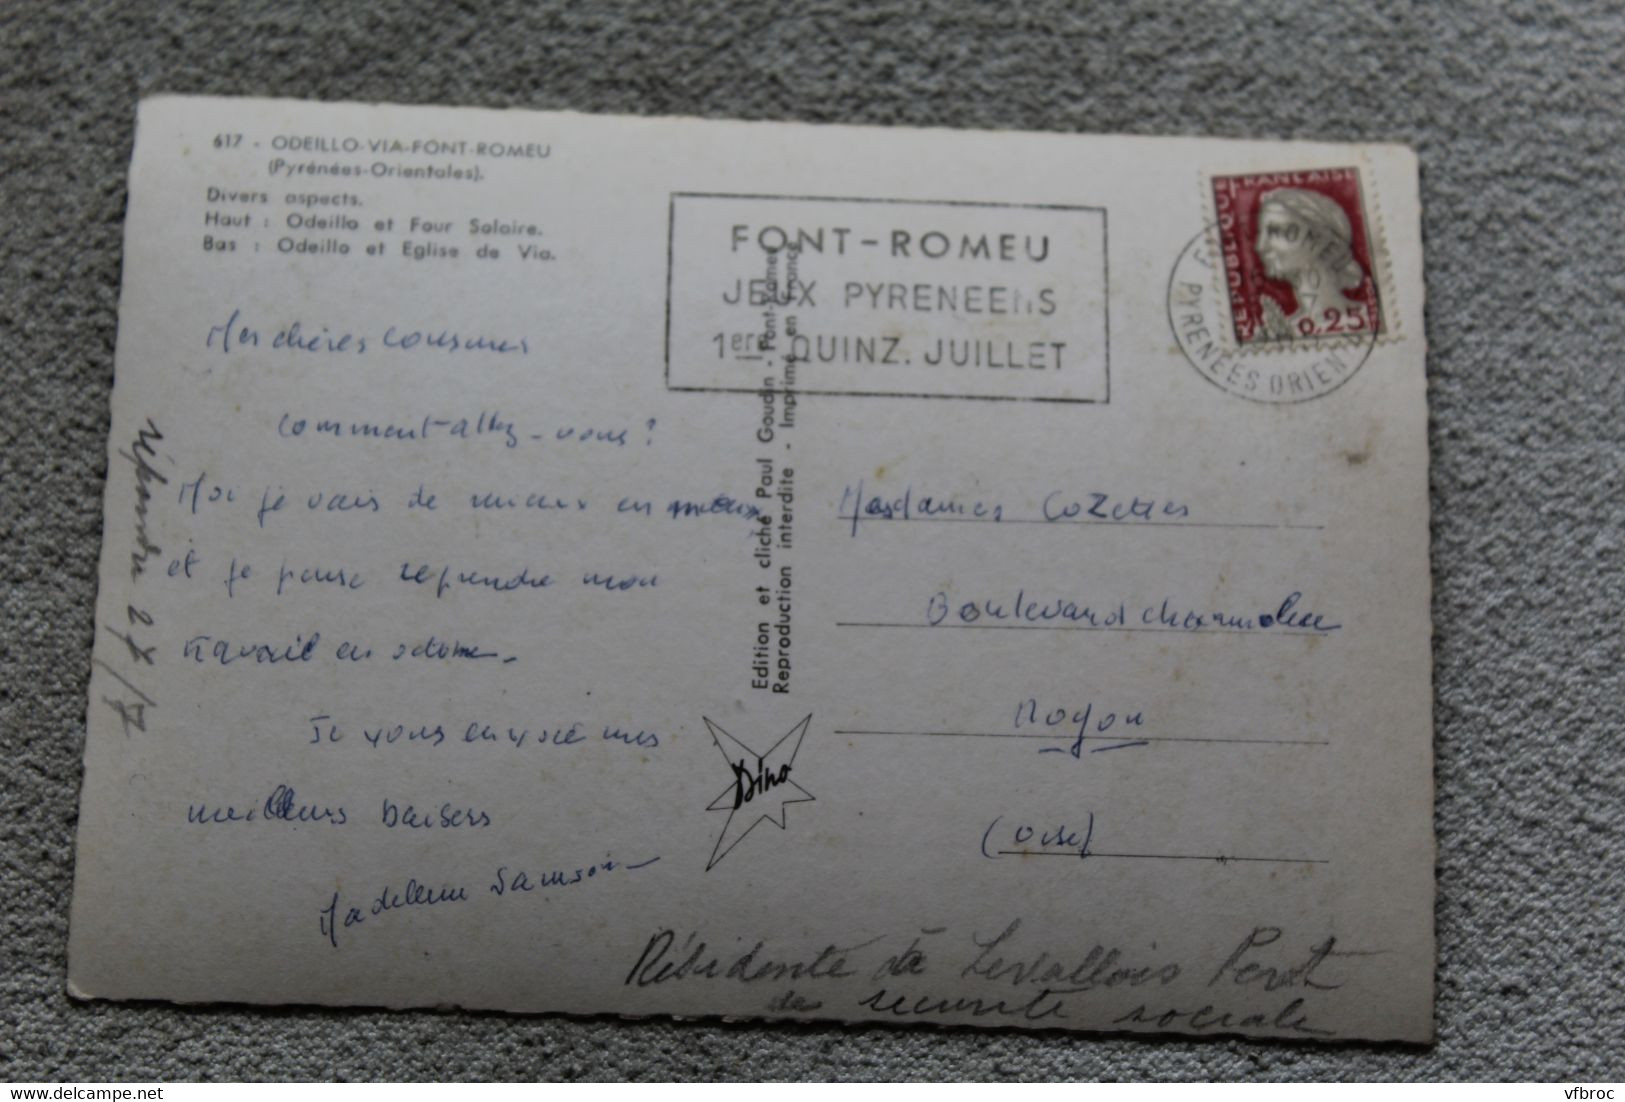 617 - ODEILLO-VIA-FONT-ROMEU
(Pyrénées-Orientales).
Divers aspects.
Haut : Odeillo et Four Solaire.
Bas : Odeillo et Eglise de Via.
FONT-ROMEU
JEUX PYRENEENS
1ere QUINZ. JUILLET
REPUBLIQUE FRANÇAISE
0,25
ROMEU
PYRENEES ORIENT
Mes chères cousines
comment allez-vous?
Moi je vais de mieux en mieux
et je pense reprendre mon
travail en octobre.
Je vous envoie mes
meilleurs baisers
Madeleine Samson
répondu 27/7
Edition et cliché Paul Gaudin - Font-Romeu
Reproduction interdite - Imprimé en France
Dino
Mesdames Cozettes
Boulevard charmolue
Noyon
(oise)
Résidente à Levallois Peret
de sécurité sociale
vfbroc